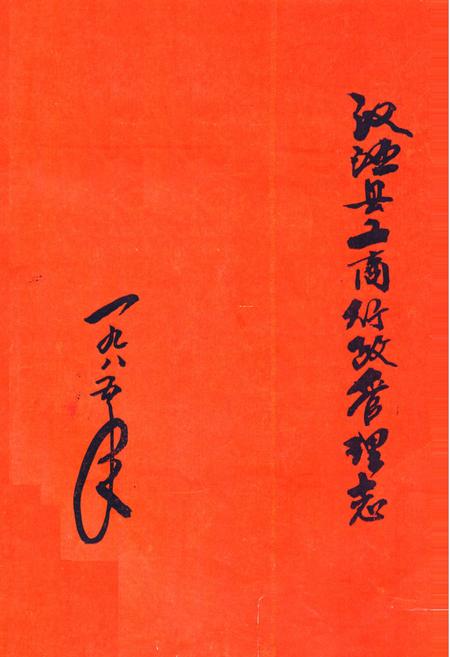 汉县工商行政管理志
一九八五年